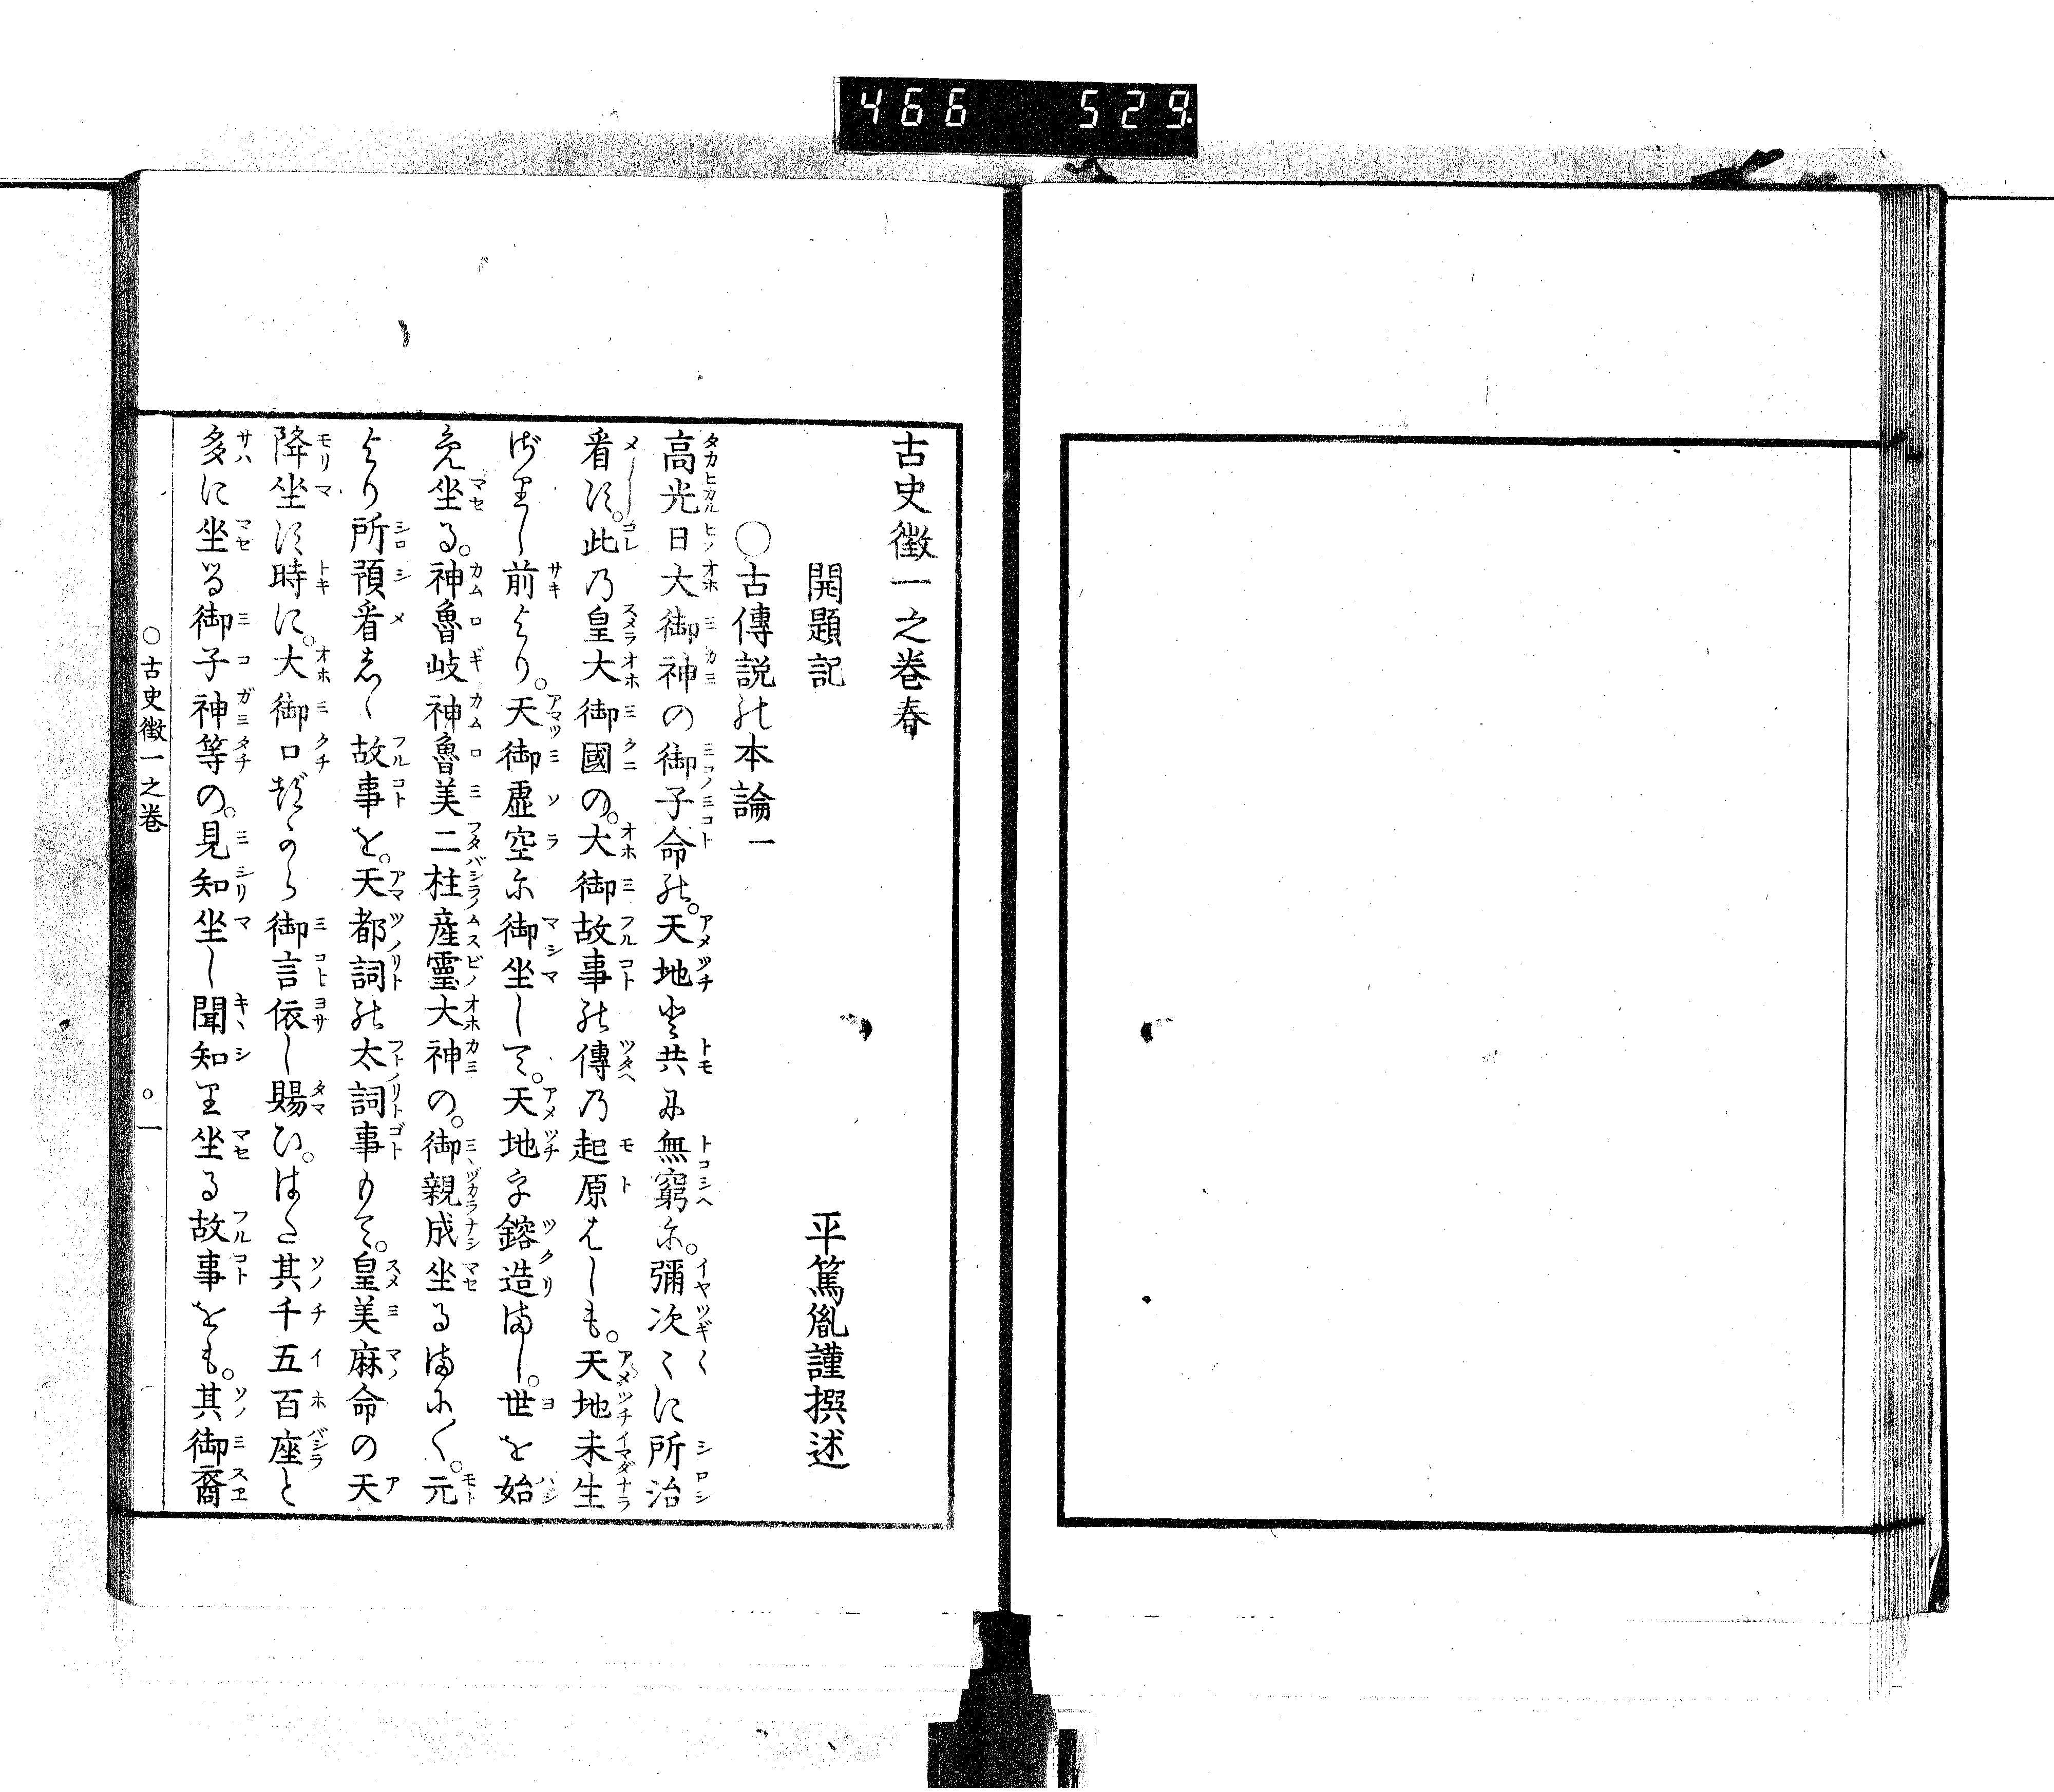 466 529.
古史徴一之巻春
開題記 平篤胤謹撰述
○古傳説の本論一
高光日大御神の御子命の。天地と共に無窮に。彌次〻に所治
看す。此乃皇大御國の。大御故事の傳乃起原はしも。天地未生
ざりし前より。天御虚空に御坐して。天地を鎔造まし。世を始
め坐る。神魯岐神魯美二柱産霊大神の。御親成坐るまに〱。元
より所預看しゝ故事を。天都詞の太詞事もて。皇美麻命の天
降坐す時に。大御口づから御言依し賜ひ。はた其千五百座と
多に坐る御子神等の。見知坐し聞知り坐る故事をも。其御裔
○古史徴一之巻 ○一